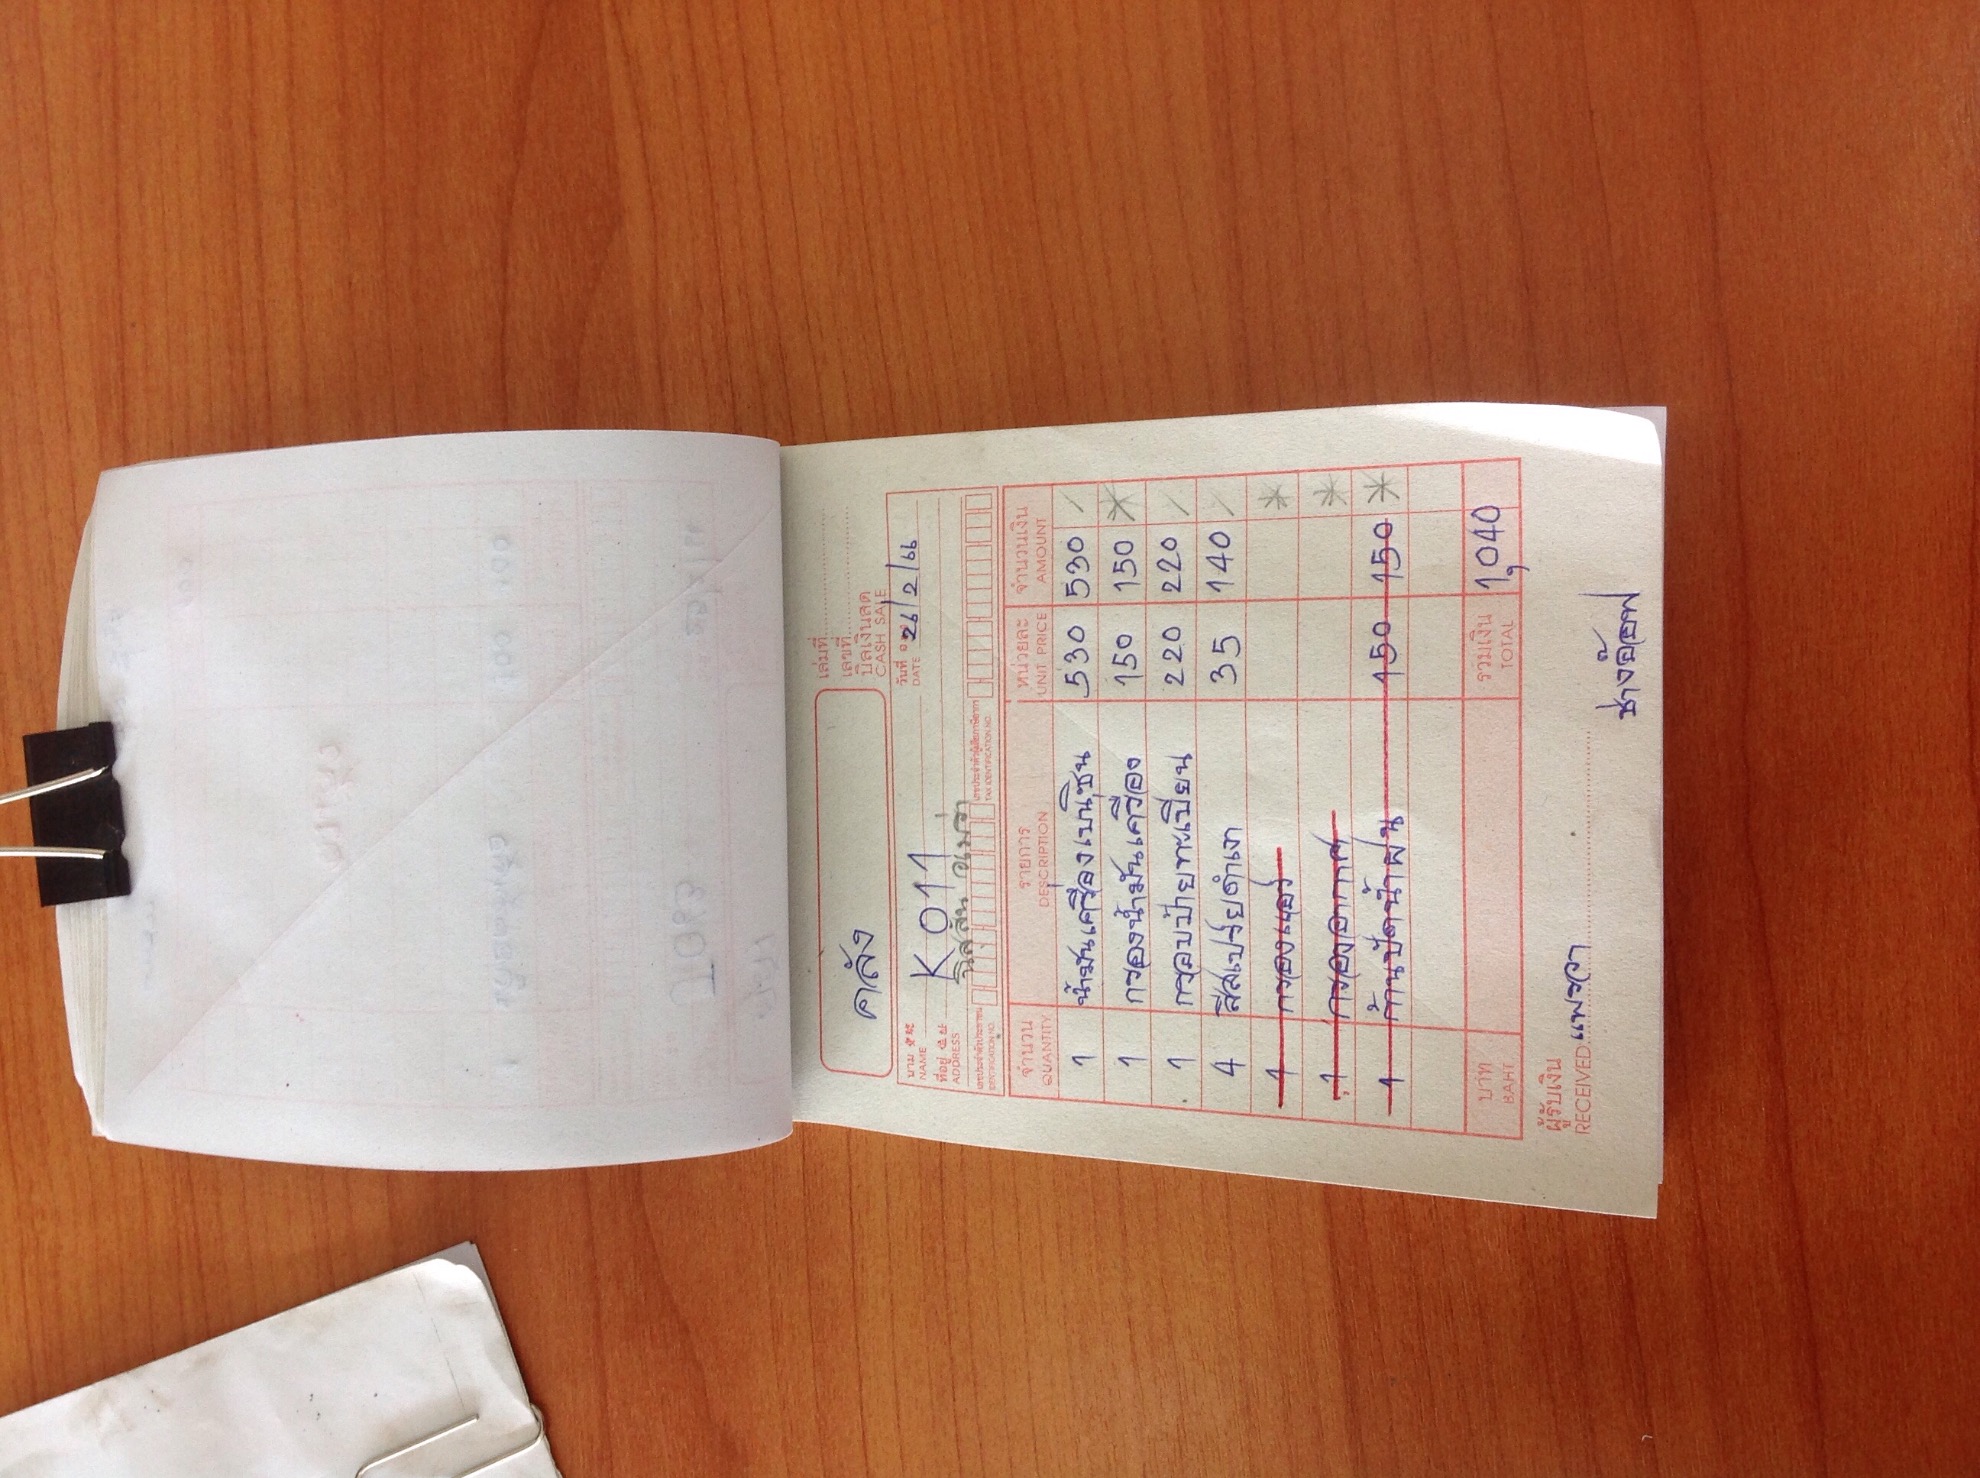 เล่มที่
เลขที่
คลัง
บิลเงินสด
CASH SALE
วันที่ 26/2/66
DATE
นาม K011
NAME
ที่อยู่ นิสสัน
ADDRESS
เลขประจำตัวประชาชน เลขประจำตัวผู้เสียภาษีอากร
IDENTIFICATION NO. TAX IDENTIFICATION NO.
จำนวน รายการ หน่วยละ จำนวนเงิน
QUANTITY DESCRIPTION UNIT PRICE AMOUNT
1 น้ำมันเครื่องเบนซิน 530 530 /
1 กรองน้ำมันเครื่อง 150 150 *
1 กรอบป้ายทะเบียน 220 220 /
4 สีสเปรย์ดำเงา 35 140 /
1 กรองแอร์ *
1 กรองอากาศ *
1 ก้านปัดน้ำฝน 150 150 *
บาท รวมเงิน 1,040
BAHT TOTAL
ผู้รับเงิน
RECEIVED แพรวา
ช่างอ๊อฟ